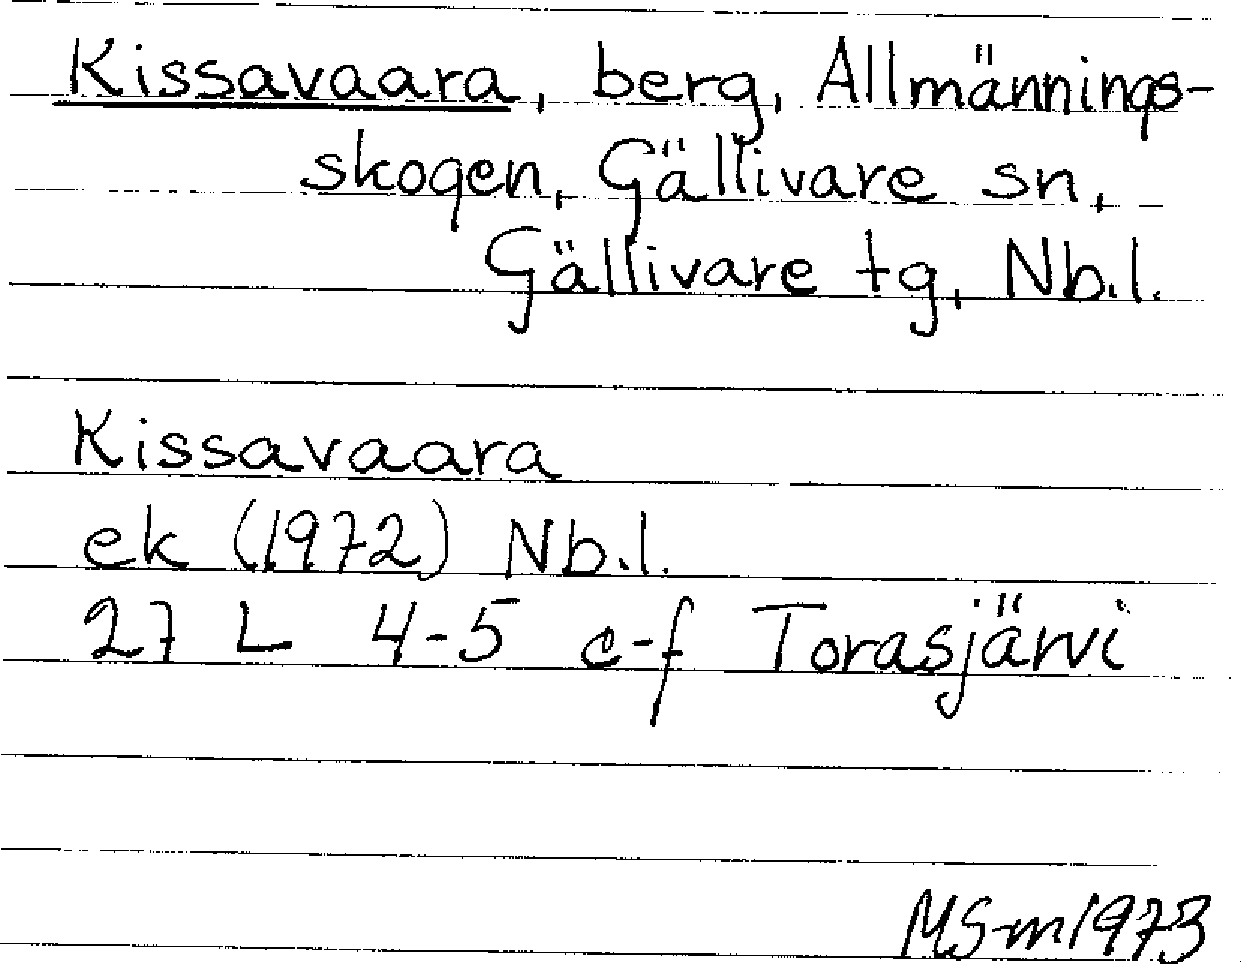 Kissavaara, berg, Allmännings-
skogen, Gällivare sn,
Gällivare tg, Nb.l.
Kissavaara
ek (1972) Nb.l.
27 L 4-5 c-f Torasjärvi
MS-m 1973